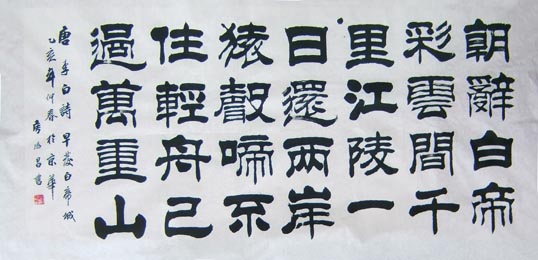 朝辭白帝
彩雲間千
里江陵一
日還兩岸
猿聲啼不
住輕舟已
過萬重山
唐李白詩早發白帝城
乙亥年仲春於京華